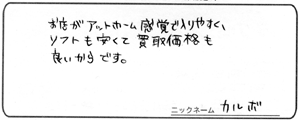 お店がアットホーム感覚で入りやすく、
ソフトも安くて買取価格も
良いからです。
ニックネーム カルボ